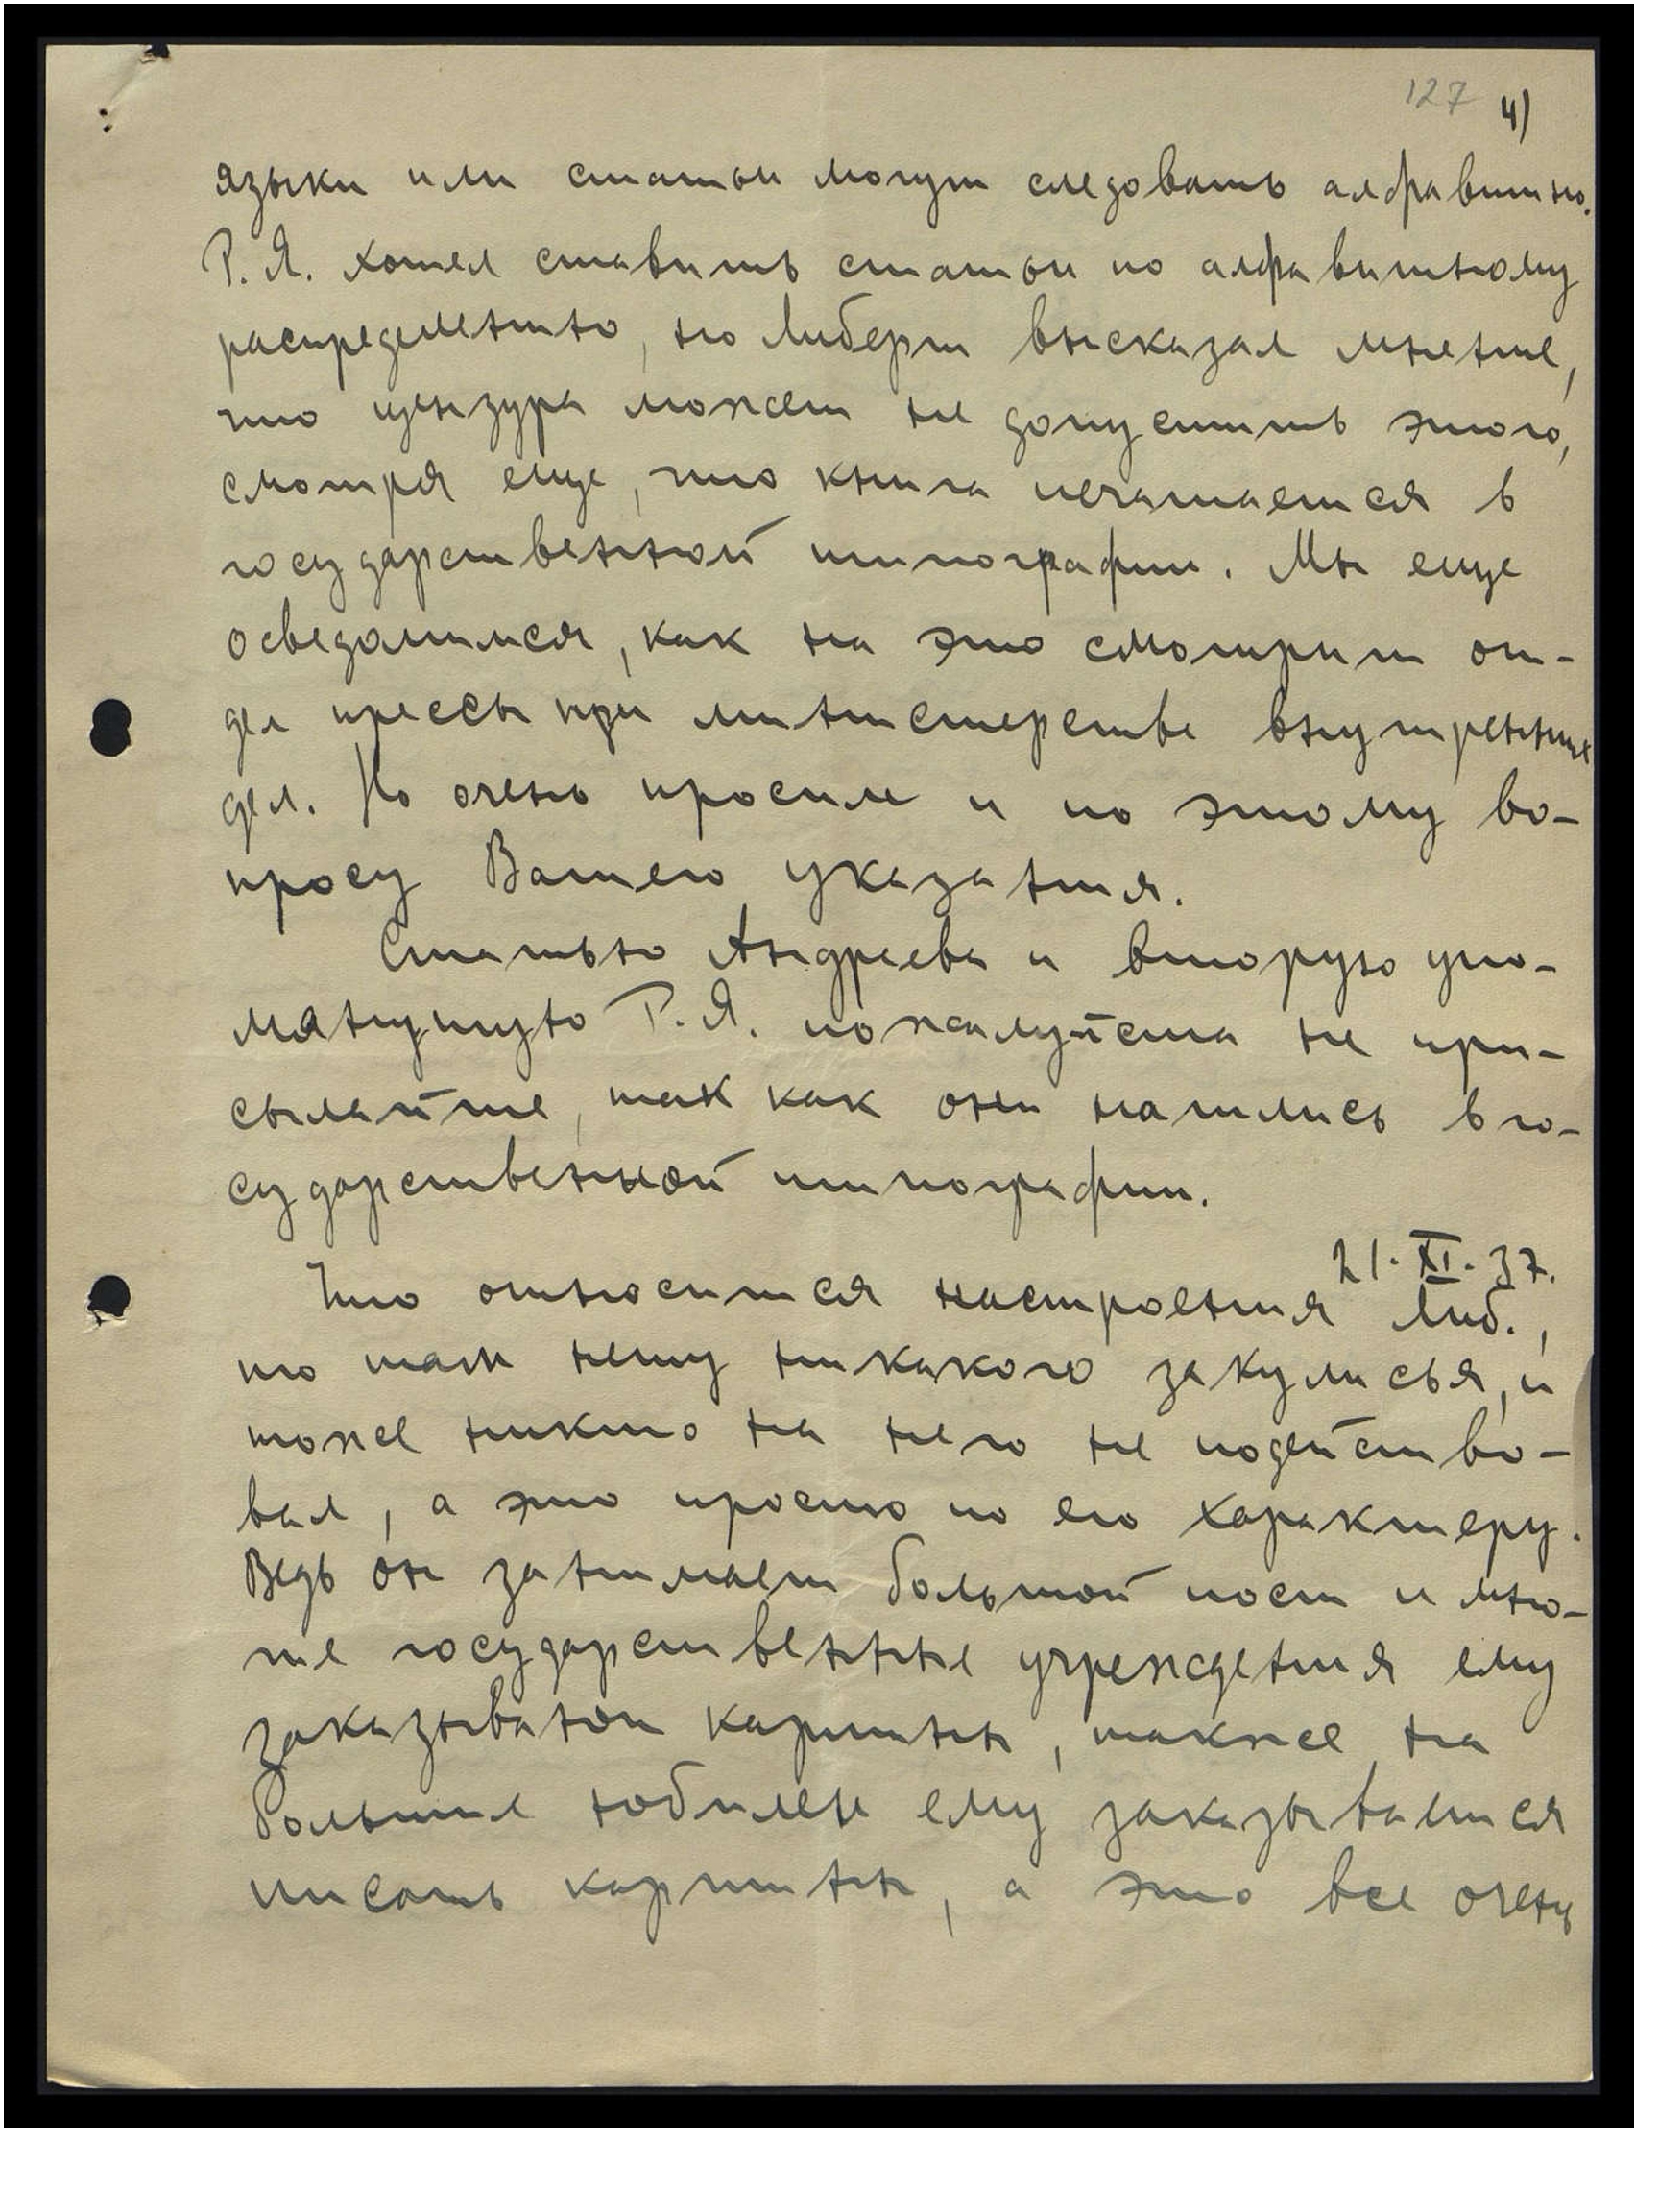 127 4)
языки или статьи могут следовать алфавитно.
Р. Я. хотел ставить статьи по алфавитному
распределению, но Либерт высказал мнение,
что цензура может не допустить этого,
смотря еще, что книга печатается в
государственной типографии. Мы еще
осведомимся, как на это смотрит от-
дел прессы при министерстве внутренних
дел. Но очень просили и по этому во-
просу Вашего указания.
Статью Андреева и вторую упо-
мянутую Р. Я. пожалуйста не при-
сылайте, так как они нашлись в го-
сударственной типографии.
21. XI. 37.
Что относится настроения Либ.,
то там нету никакого закулисья, и
тоже никто на него не подейство-
вал, а это просто по его характеру.
Ведь он занимает большой пост и мно-
гие государственные учреждения ему
заказывают картины, также на
большие юбилеи ему заказывается
писать картины, а это все очень